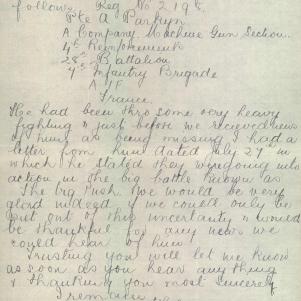 follows Reg No 2198
Pte A Parkyn
A Company Machine Gun Section
4th Reinforcement
28th Battalion
4th Infantry Brigade
A I F
France.
He had been thro some very heavy
fighting & just before we recieved news
of him as being missing I had a
letter from him dated July 27th in
which he stated they were going into
action in the big battle known as
The big Push We would be very
glad indeed if we could only be
put out of this uncertainty & would
be thankful for any news we
could hear of him
Trusting you will let me know
as soon as you hear any thing
& thanking you most sincerely
I remain